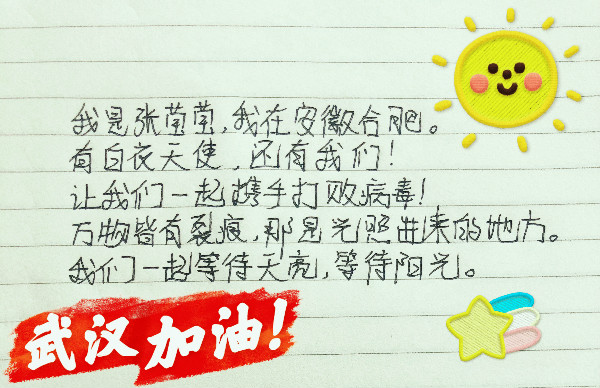 我是张莹莹,我在安徽合肥。
有白衣天使,还有我们!
让我们一起携手打败病毒!
万物皆有裂痕,那是光照进来的地方。
我们一起等待天亮,等待阳光。
武汉加油!